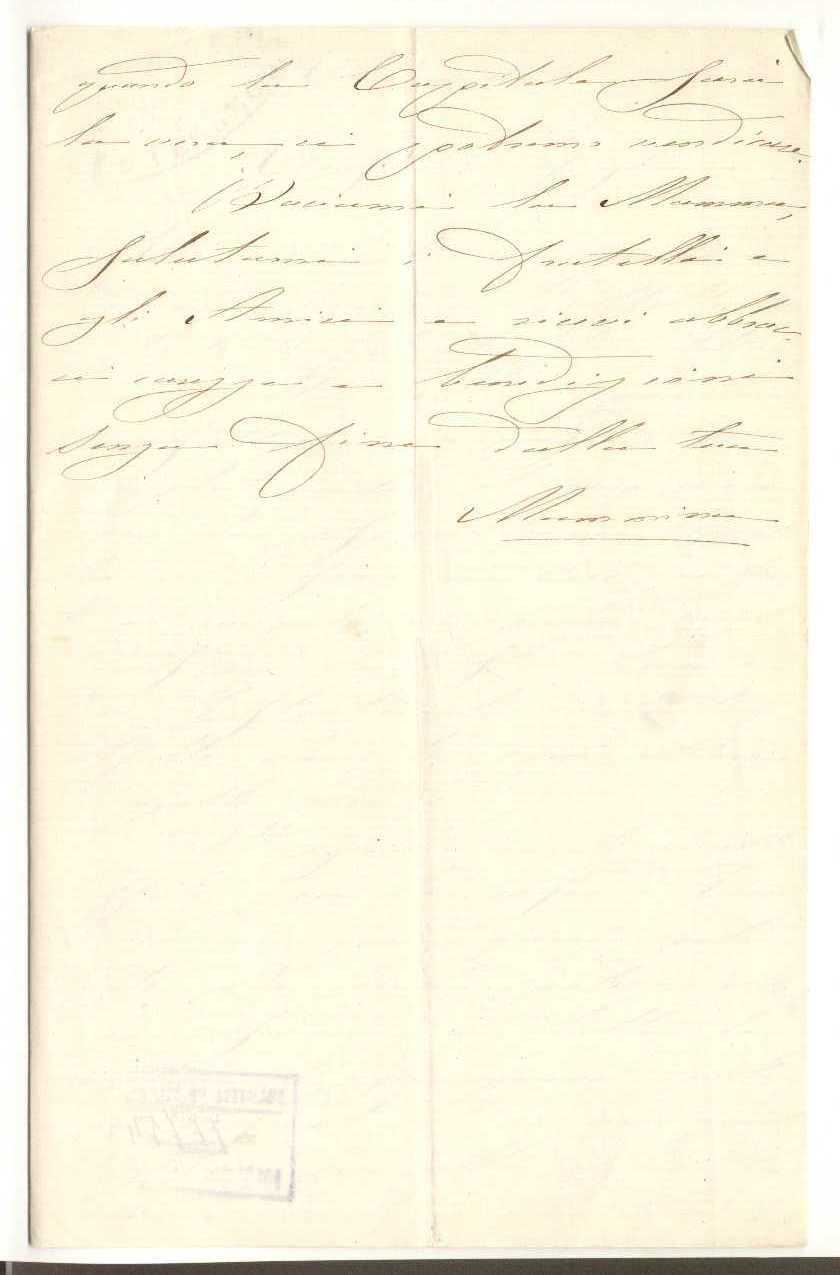 quando la Cappitale sarà
la vera, ci potremo vendicare.
Baciami la Mamma,
salutami i fratelli e
gli Amici e ricevi abbrac-
ci carezze e benedizioni
senza fine dalla tua
Mammina